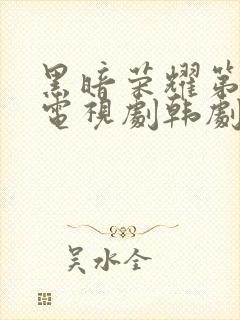 黑暗荣耀第
電視劇韩劇
吴水全